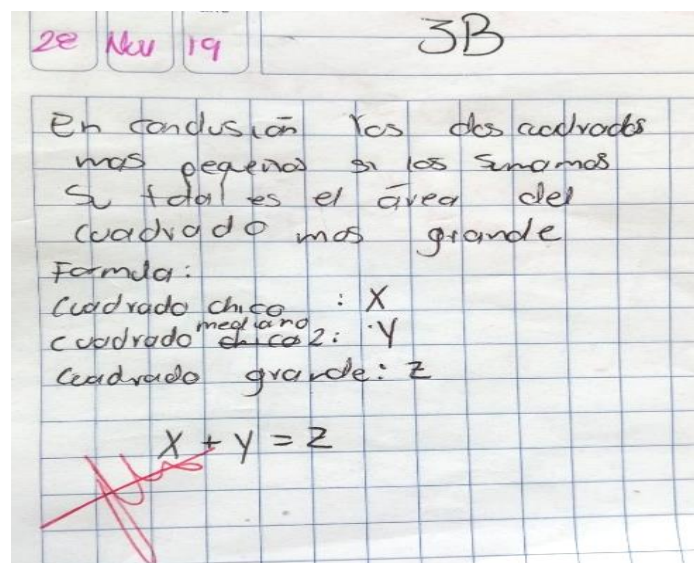 28 Nov 19
3B
En conclusión los dos cuadrados
mas pequeños si los sumamos
Su total es el área del
cuadrado mas grande
Formula:
Cuadrado chico : X
cuadrado mediano 2: Y
Cuadrado grande: Z
X + Y = Z